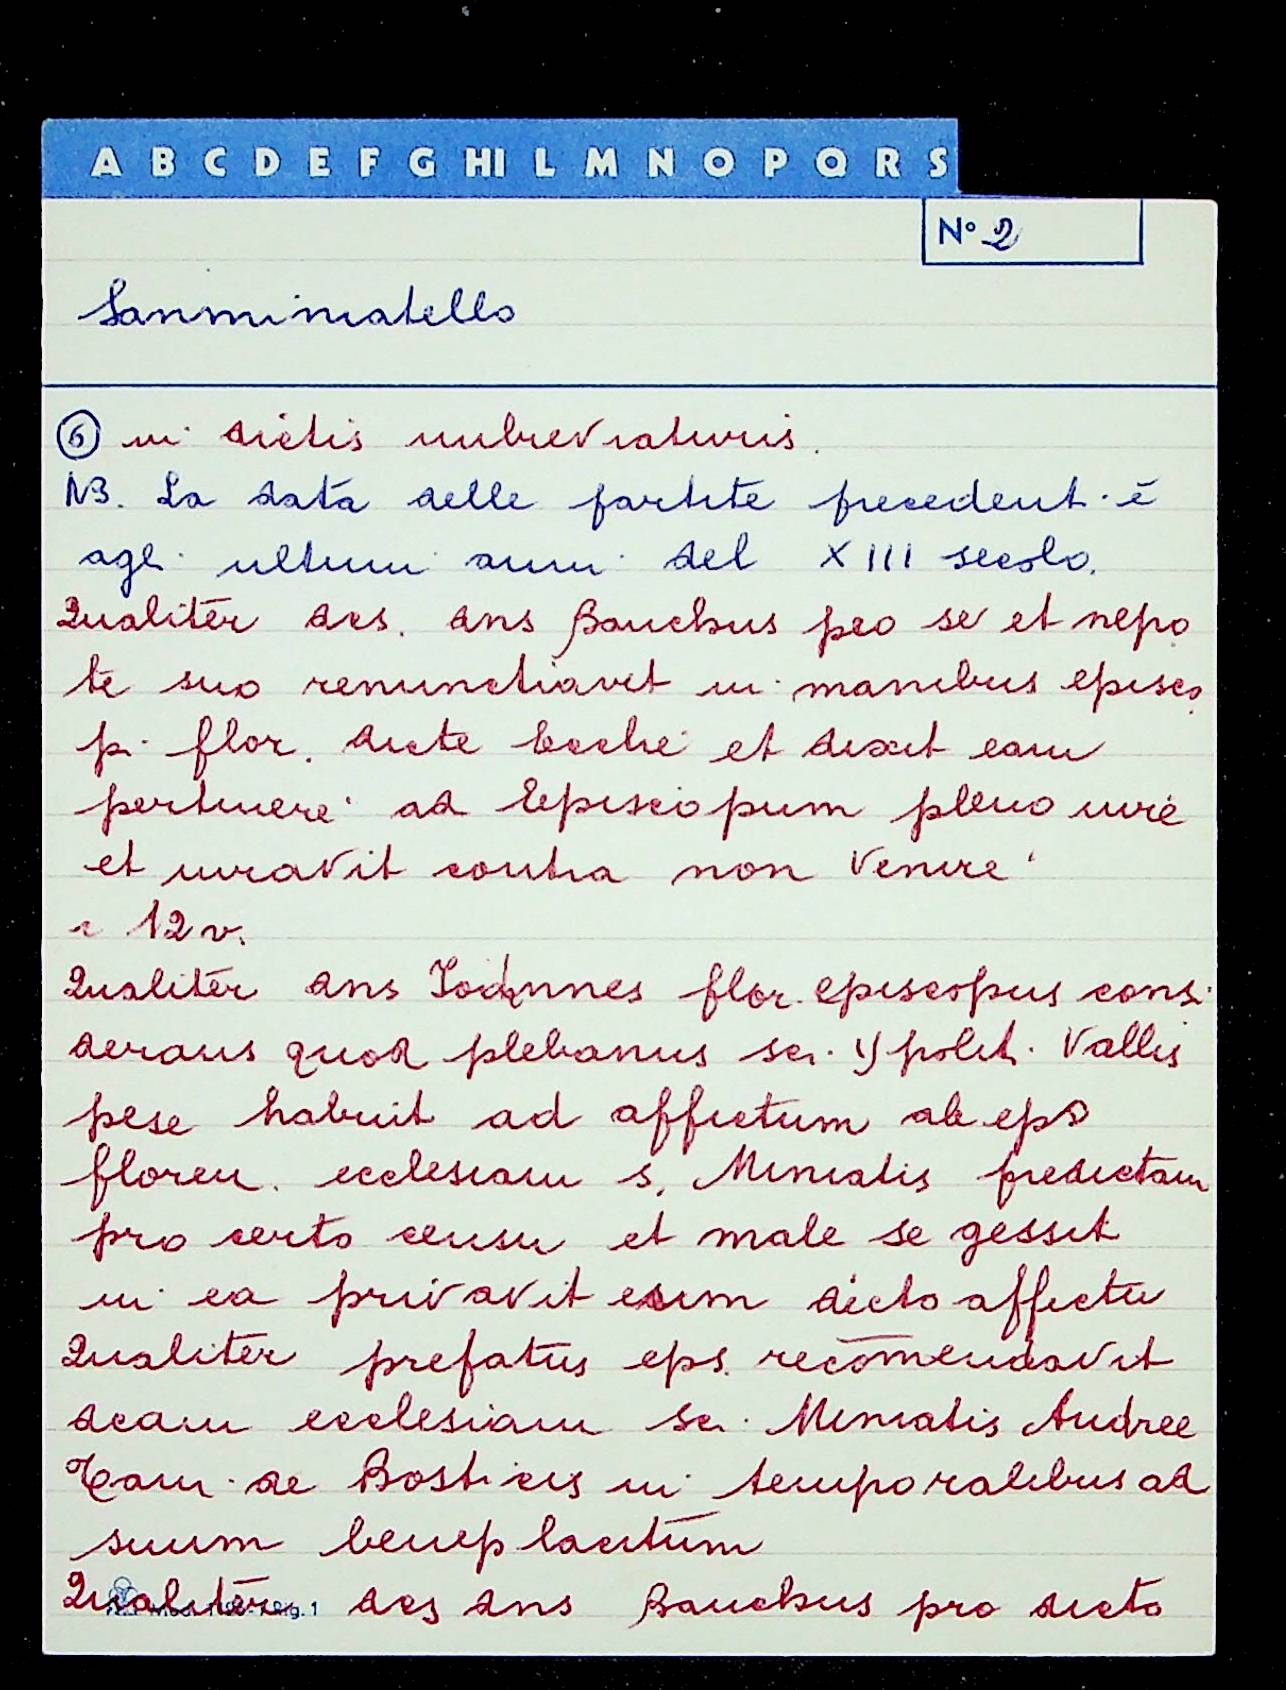 A B C D E F G HI L M N O P Q R S
N° 2
Sanminiatello
⑥ in dictis imbreviaturis.
NB. La data delle partite precedenti è
agli ultimi anni del XIII secolo.
Qualiter dcs. dns Bauchus pro se et nepo
te suo renunctiavit in manibus episco
pi flor. dicte Ecclie et dixit eam
pertinere ad Episcopum pleno iure
et iuravit contra non venire
c 12 v.
Qualiter dns Iohannes flor. episcopus consi
derans quod plebanus sci. Ypoliti Vallis
pese habuit ad affictum ab epo
floren. ecclesiam s. Miniatis predictam
pro certo censu et male se gessit
in ea privavit eum dicto affictu
Qualiter prefatus eps. recomendavit
dcam ecclesiam sci Miniatis Andree
de Bosticis in temporalibus ad
suum beneplacitum
Qualiter dcs dns Bauchus pro dicto